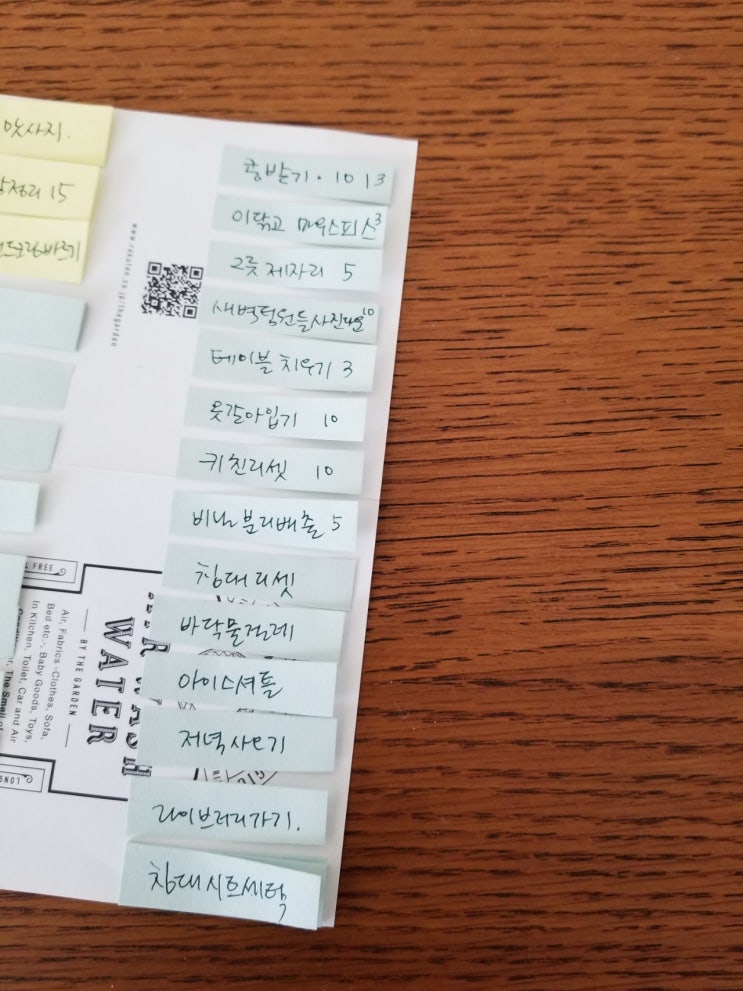 맛사지.
정리 15
핸드크림바르기
콩발기. 10 13
이닦고 마우스피스 3
그릇 제자리 5
새벽텀런들사진 10
테이블 치우기 3
옷갈아입기 10
키친리셋 10
비닐 분리배출 5
침대리셋
바닥물걸레
아이스셔틀
저녁사오기
라이브러리가기.
침대시트세탁
www.rakuten.co.jp/thegarden
FREE
Air, Fabrics -Clothes, Sofa,
Bed etc-, Baby Goods, Toys,
in Kitchen, Toilet, Car and Air
The Smell of
BY THE GARDEN
WATER
LONG